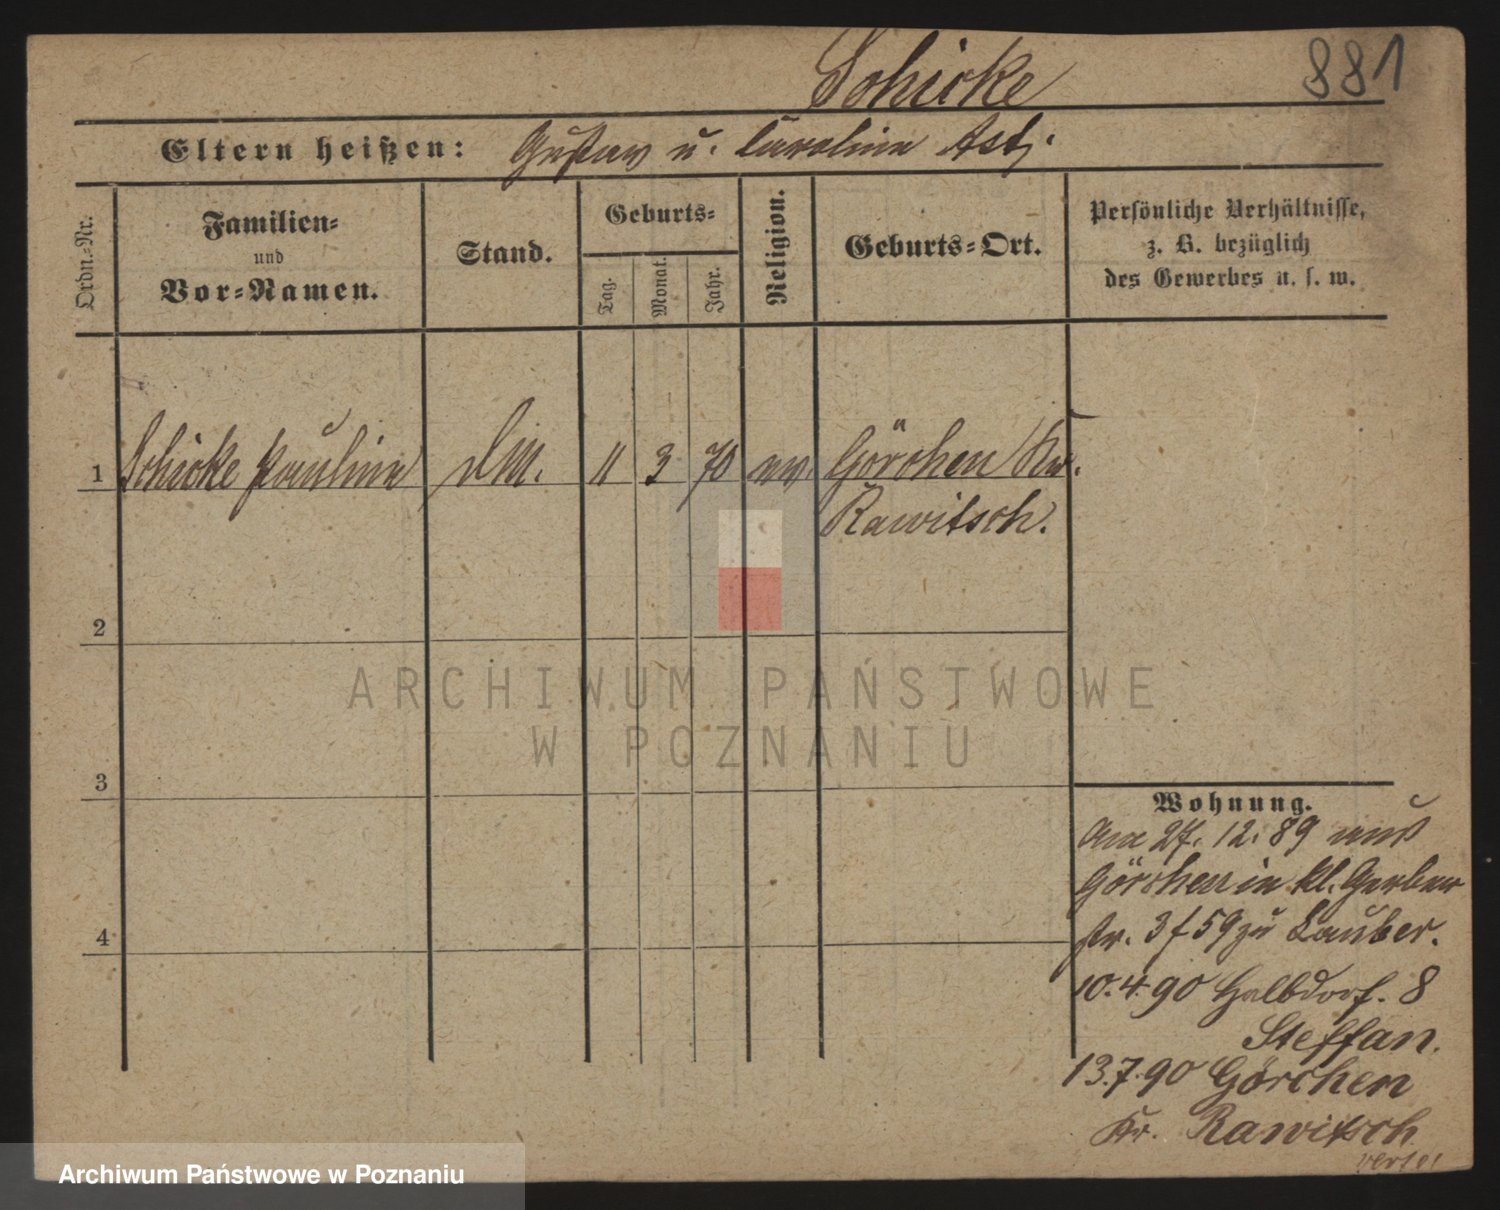 Schicke
881
Eltern heißen: Gustav u. Caroline
Ordn.-Nr.
Familien-
und
Vor-Namen.
Stand.
Geburts-
Tag.
Monat.
Jahr.
Religion.
Geburts-Ort.
Persönliche Verhältnisse,
z. B. bezüglich
des Gewerbes u. s. w.
1 Schicke Pauline DM. 11 3 70 ev. Görchen Kr.
Rawitsch.
2
3
4
Wohnung.
Am 27. 12. 89 aus
Görchen in kl. Gerber
str. 3 f 59 zu Lauber.
10.4.90 Halbdorf. 8
Steffan.
13.7.90 Görchen
Kr. Rawitsch
ARCHIWUM PAŃSTWOWE
W POZNANIU
Archiwum Państwowe w Poznaniu